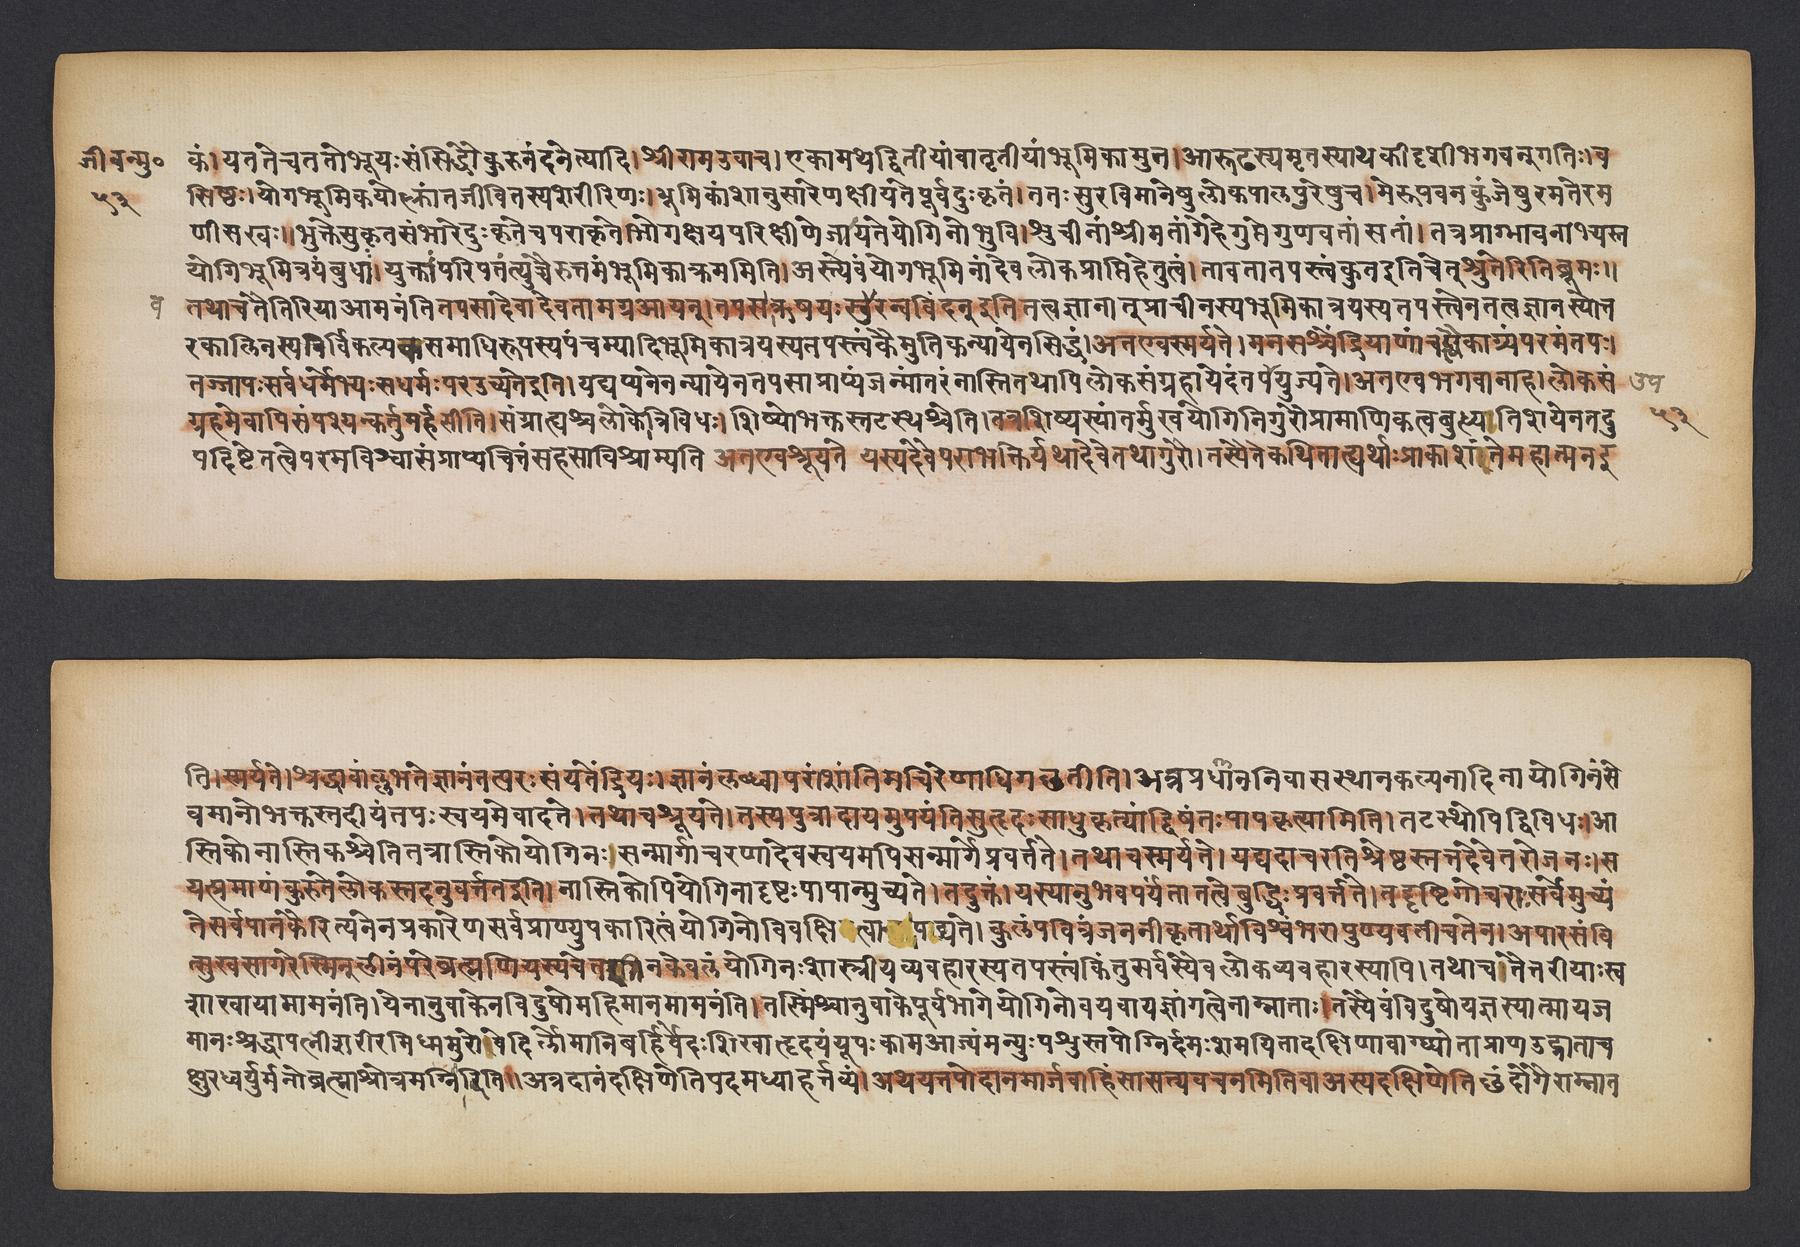 जीवन्मु० कं। यततेचततोभूयःसंसिद्धौकुरुनंदनेत्यादि। श्रीरामउवाच। एकामथद्वितीयांवातृतीयांभूमिकामुत। आरूढस्यमृतस्याथकीदृशीभगवन्गतिः। व
५३ सिष्ठः। योगभूमिकयोत्क्रांतजीवितस्यशरीरिणः। भूमिकांशानुसारेणक्षीयतेपूर्वदुःकृतं। ततःसुरविमानेषुलोकपालपुरेषुच। मेरूपवनकुंजेषुरमतेरम
णीसखः॥ भुक्तेसुकृतसंभारेदुःकृतेचपराकृते। भोगक्षयपरिक्षीणेजायंतेयोगिनोभुवि। शुचीनांश्रीमतांगेहेगुप्तेगुणवतांसतां। तत्रप्राग्भावनाभ्यस्त
योगिभूमित्रयंबुधाः। युक्तांपरिपतंत्युच्चैरुत्तमंभूमिकाक्रममिति। अस्त्येवंयोगभूमिनांदेवलोकप्राप्तिहेतुत्वं। तावतातपस्त्वंकुतइतिचेत्श्रुतेरितिब्रूमः॥
व तथाचतैतिरियाआमनंतितपसादेवादेवतामग्रआयन्। तपसऋषयःस्वरन्वविंदन्इति तत्वज्ञानातुप्राचीनस्यभूमिकात्रयस्यतपस्त्वेनतत्वज्ञानस्योत
रकालिनस्यनिर्विकल्पसमाधिरूपस्यपंचम्यादिभूमिकात्रयस्यतपस्त्वंकैमुतिकन्यायेनसिद्धं। अतएवस्मर्यते। मनसश्चेंद्रियाणांचह्यैकाग्र्यंपरमंतपः।
तज्जापःसर्वधर्मेभ्यःसधर्मःपरउच्यतेइति। यद्यप्यनेनन्यायेनतपसाप्राप्यंजन्मांतरंनास्तितथापिलोकसंग्रहायेदंतपयुज्यते। अतएवभगवानाह। लोकसं उप
ग्रहमेवापिसंपश्यन्कर्तुमर्हसीति। संग्राह्यश्चलोकेत्रिविधः। शिष्योभक्तस्तटस्थश्चेति। तत्रशिष्यस्यांतर्मुखयोगिनिगुरौप्रामाणिकत्वबुध्यातिशयेनतदु ५३
पदिष्टेतत्वेपरमविश्वासंप्राप्यचित्तंसहसाविश्राम्यति अतएवश्रूयते यस्यदेवेपराभक्तिर्यथादेवेतथागुरौ। तस्यैतेकथिताह्यर्थाःप्रकाशंतेमहात्मनइ
ति। स्मर्यते। श्रद्धावांल्लभतेज्ञानंतत्परःसंयतेंद्रियः। ज्ञानंलब्ध्वापरांशांतिमचिरेणाधिगछतीति। अन्नप्रधाननिवासस्थानकल्पनादिनायोगिनंसे
वमानोभक्तस्तदीयंतपःस्वयमेवादत्ते। तथाचश्रूयते। तस्यपुत्रादायमुपयंतिसुहृदःसाधुकृत्यांद्विषंतःपापकृत्यामिति। तटस्थोपिद्विविधः। आ
स्तिकोनास्तिकश्चेतितत्रास्तिकोयोगिनःसन्मार्गाचरणांदेवस्वयमपिसन्मार्गेप्रवर्त्तते। तथाचस्मर्यते। यद्यदाचरतिश्रेष्ठस्तत्तदेवेतरोजनः। स
यत्प्रमाणंकुरुतेलोकस्तदनुवर्त्ततइति। नास्तिकोपियोगिनादृष्टःपापान्मुच्यते। तदुक्तं। यस्यानुभवपर्यंतातत्वेबुद्धिःप्रवर्त्तते। तद्दृष्टिगोचराःसर्वेमुच्यं
तेसर्वपातकैरित्यनेनप्रकारेणसर्वप्राण्युपकारित्वंयोगिनोविवक्षि पठ्यते। कुलंपवित्रंजननीकृतार्थाविश्वंभरापुण्यवतीचतेन। अपारसंवि
त्सुखसागरेस्मिन्लीनंपरेब्रह्मणियस्यचेतः। नकेवलंयोगिनःशास्त्रीयव्यवहारस्यतपस्त्वंकिंतुसर्वस्यैवलोकव्यवहारस्यापि। तथाचतैत्तरीयाःस्व
शाखायामामनंति। येनानुवाकेनविदुषोमहिमानमामनंति। तस्मिंश्चानुवाकेपूर्वभागेयोगिनोवयवायज्ञांगत्वेनाम्नाताः। तस्यैवंविदुषोयज्ञस्यात्मायज
मानःश्रद्धापत्नीशरीरमिध्ममुरोवेदिर्लोमानिबर्हिर्वेदःशिखाहृदयंयूपःकामआज्यंमन्युःपशुस्तपोग्निर्दमःशमयितादक्षिणावाग्घोताप्राणउद्गाताच
क्षुरध्वर्युर्मनोब्रह्माश्रोत्रमग्निरिति॥ अत्रदानंदक्षिणेतिपदमध्याहर्त्तव्यं। अथयत्तपोदानमार्जवाहिंसासत्यवचनमितिवाअस्यदक्षिणेतिछंदोगैराम्नात